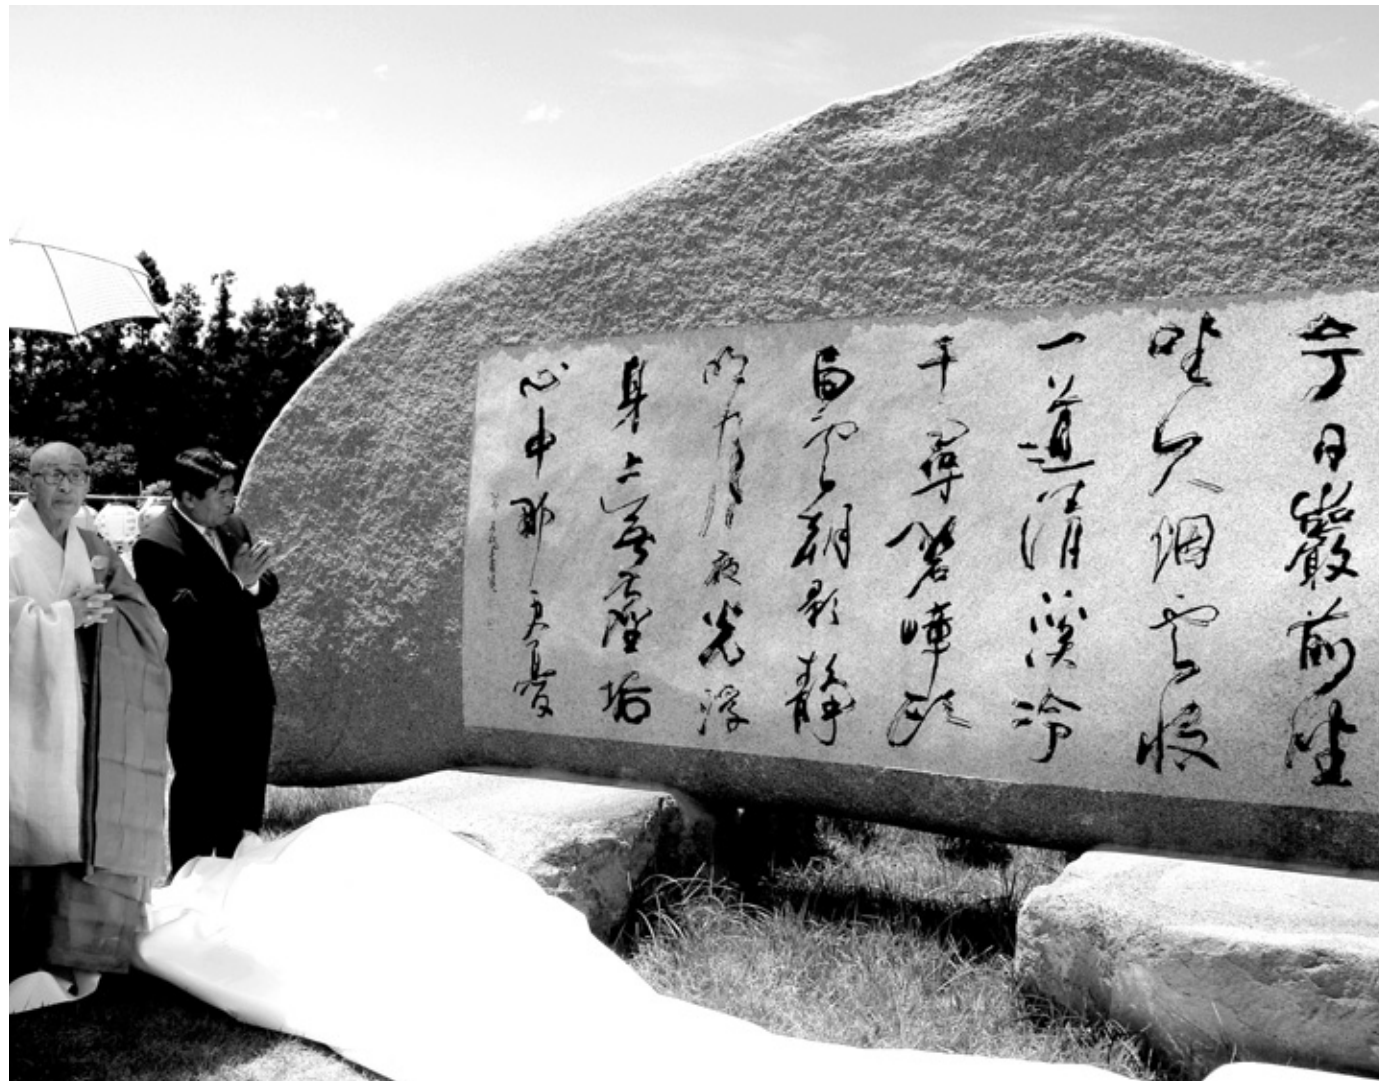 今日巖前坐
坐久烟雲收
一道清溪冷
千尋碧嶂頭
白雲朝影靜
明月夜光浮
身上無塵垢
心中那更憂